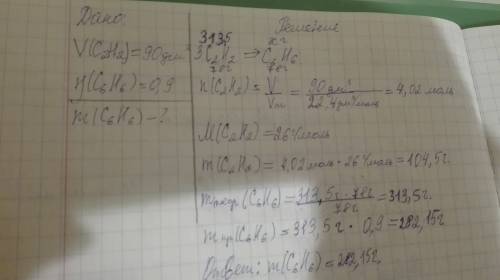 Дано:
V(C₂H₂)=90 дм³
η(C₆H₆)=0,9
m(C₆H₆)-?
Решение
313,5 xг
3C₂H₂ ⇒ C₆H₆
78г 78г
n(C₂H₂)= V/Vm = 90 дм³/22,4 дм³/моль = 4,02 моль
M(C₂H₂)=26г/моль
m(C₂H₂)=4,02моль·26г/моль=104,5г.
mтеор(C₆H₆)=313,5г·78г/78г=313,5г.
mпр(C₆H₆)=313,5г·0,9=282,15г
Ответ: m(C₆H₆)=282,15г.